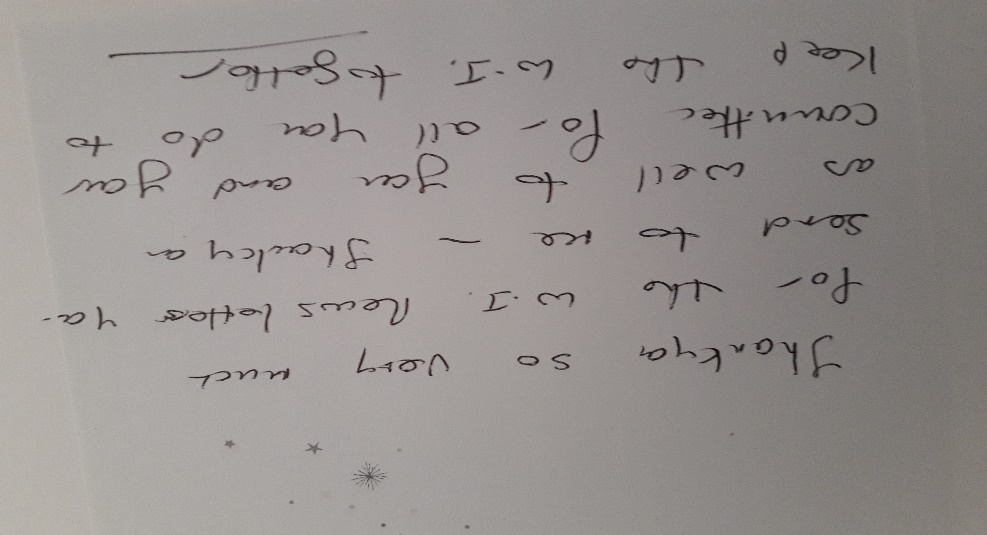 Thankyou so very much
for the W.I. Newsletter you
send to me – Thankyou
as well to you and you
committee for all you do to
keep the W.I. together